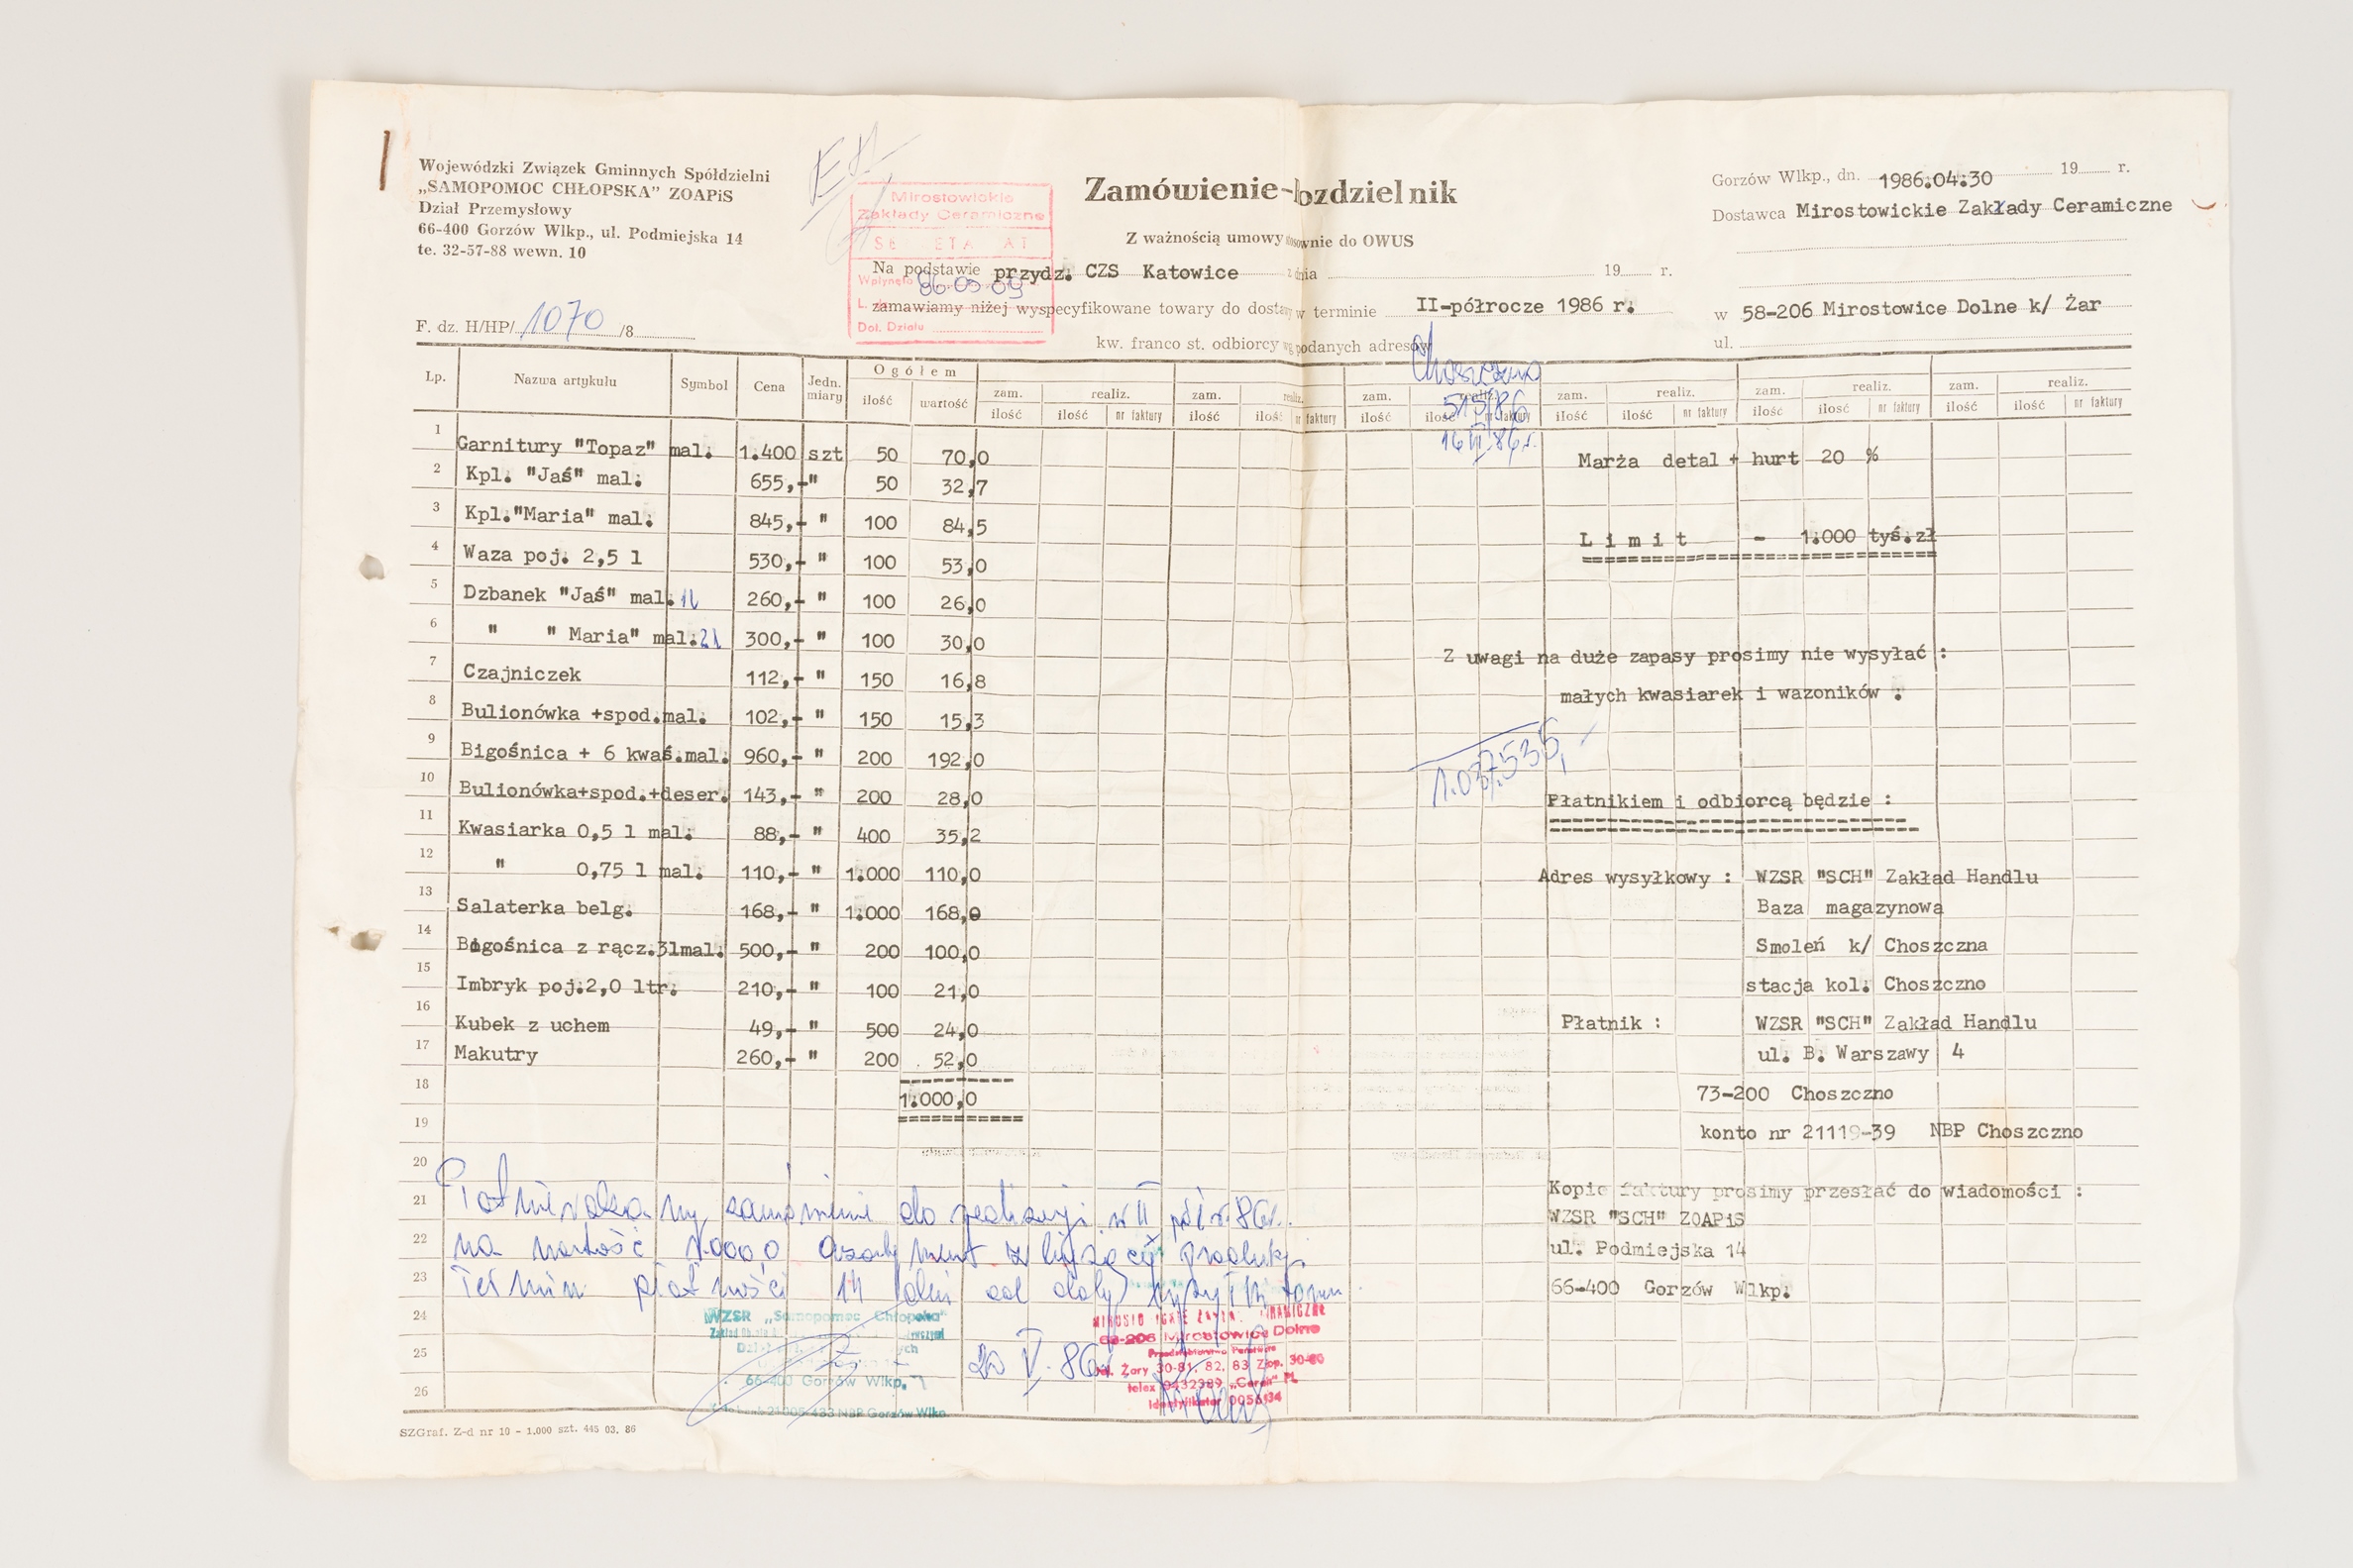 Wojewódzki Związek Gminnych Spółdzielni
„SAMOPOMOC CHŁOPSKA” ZOAPiS
Dział Przemysłowy
66-400 Gorzów Wlkp., ul. Podmiejska 14
te. 32-57-88 wewn. 10
F. dz. H/HP/ 1070 /8
Mirostowickie
Zakłady Ceramiczne
SE ETA AT
Wpłynęło 86-05-09
L. dz.
Doł. Działu
Zamówienie-Rozdzielnik
Z ważnością umowy stosownie do OWUS
Na podstawie przydz. CZS Katowice z dnia 19 r.
zamawiamy niżej wyspecyfikowane towary do dostawy w terminie II-półrocze 1986 r.
kw. franco st. odbiorcy wg podanych adresów
Gorzów Wlkp., dn. 1986.04.30 19 r.
Dostawca Mirostowickie Zakłady Ceramiczne
w 58-206 Mirostowice Dolne k/ Żar
ul.
Choszczno
515/86
Lp. Nazwa artykułu Symbol Cena Jedn. miary Ogółem
ilość wartość
zam. realiz. zam. realiz. zam. realiz. zam. realiz. zam. realiz. zam. realiz.
ilość ilość nr faktury ilość ilość nr faktury ilość ilość nr faktury ilość ilość nr faktury ilość ilość nr faktury ilość ilość nr faktury
1 Garnitury "Topaz" mal. 1.400 szt 50 70,0
2 Kpl. "Jaś" mal. 655,- " 50 32,7
3 Kpl."Maria" mal. 845,- " 100 84,5
4 Waza poj. 2,5 l 530,- " 100 53,0
5 Dzbanek "Jaś" mal. 1l 260,- " 100 26,0
6 " " Maria" mal. 2l 300,- " 100 30,0
7 Czajniczek 112,- " 150 16,8
8 Bulionówka +spod.mal. 102,- " 150 15,3
9 Bigośnica + 6 kwaś.mal. 960,- " 200 192,0
10 Bulionówka+spod.+deser. 143,- " 200 28,0
11 Kwasiarka 0,5 l mal. 88,- " 400 35,2
12 " 0,75 l mal. 110,- " 1.000 110,0
13 Salaterka belg. 168,- " 1.000 168,0
14 Bigośnica z rącz.3lmal. 500,- " 200 100,0
15 Imbryk poj.2,0 ltr. 210,- " 100 21,0
16 Kubek z uchem 49,- " 500 24,0
17 Makutry 260,- " 200 52,0
18 1.000,0
19
20
21
22
23
24
25
26
Marża detal + hurt 20 %
Limit - 1.000 tyś.zł
Z uwagi na duże zapasy prosimy nie wysyłać :
małych kwasiarek i wazoników .
1.037.535,-
Płatnikiem i odbiorcą będzie :
Adres wysyłkowy : WZSR "SCH" Zakład Handlu
Baza magazynowa
Smoleń k/ Choszczna
stacja kol. Choszczno
Płatnik : WZSR "SCH" Zakład Handlu
ul. B. Warszawy 4
73-200 Choszczno
konto nr 21119-39 NBP Choszczno
Kopie faktury prosimy przesłać do wiadomości :
WZSR "SCH" ZOAPiS
ul. Podmiejska 14
66-400 Gorzów Wlkp.
Potwierdzamy zamówienie do realizacji w II półr. 86r.
na wartość 1.000,0 asortyment z bieżącej produkcji
Termin płatności 14 dni od daty
WZSR „Samopomoc Chłopska”
66-400 Gorzów Wlkp.
NBP Gorzów Wlkp.
20 V. 86r
Mirostowice Dolne
Przedsiębiorstwo Państwowe
tel. Żary 30-81, 82, 83 Zaop. 30-80
telex 0432389 „Cerak” PL
Identyfikator 0056134
SZGraf. Z-d nr 10 - 1.000 szt. 445 03. 86